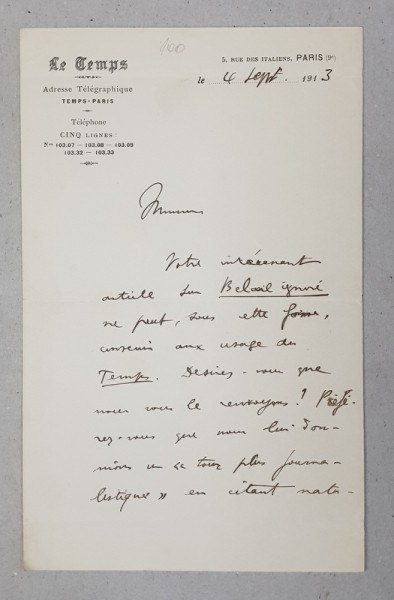 100
Le Temps
Adresse Télégraphique
TEMPS-PARIS
Téléphone
CINQ LIGNES:
Nos 103.07 — 103.08 — 103.09
103.32 — 103.33
5, RUE DES ITALIENS, PARIS (9e)
le 4 Sept. 1913
Monsieur
Votre intéressant
article sur Beloeil ignoré
ne peut, sous cette forme,
convenir aux usages du
Temps. Désirez-vous que
nous vous le renvoyions? Préfé-
rez-vous que nous lui don-
nions un « tour plus journa-
listique » en citant natu-